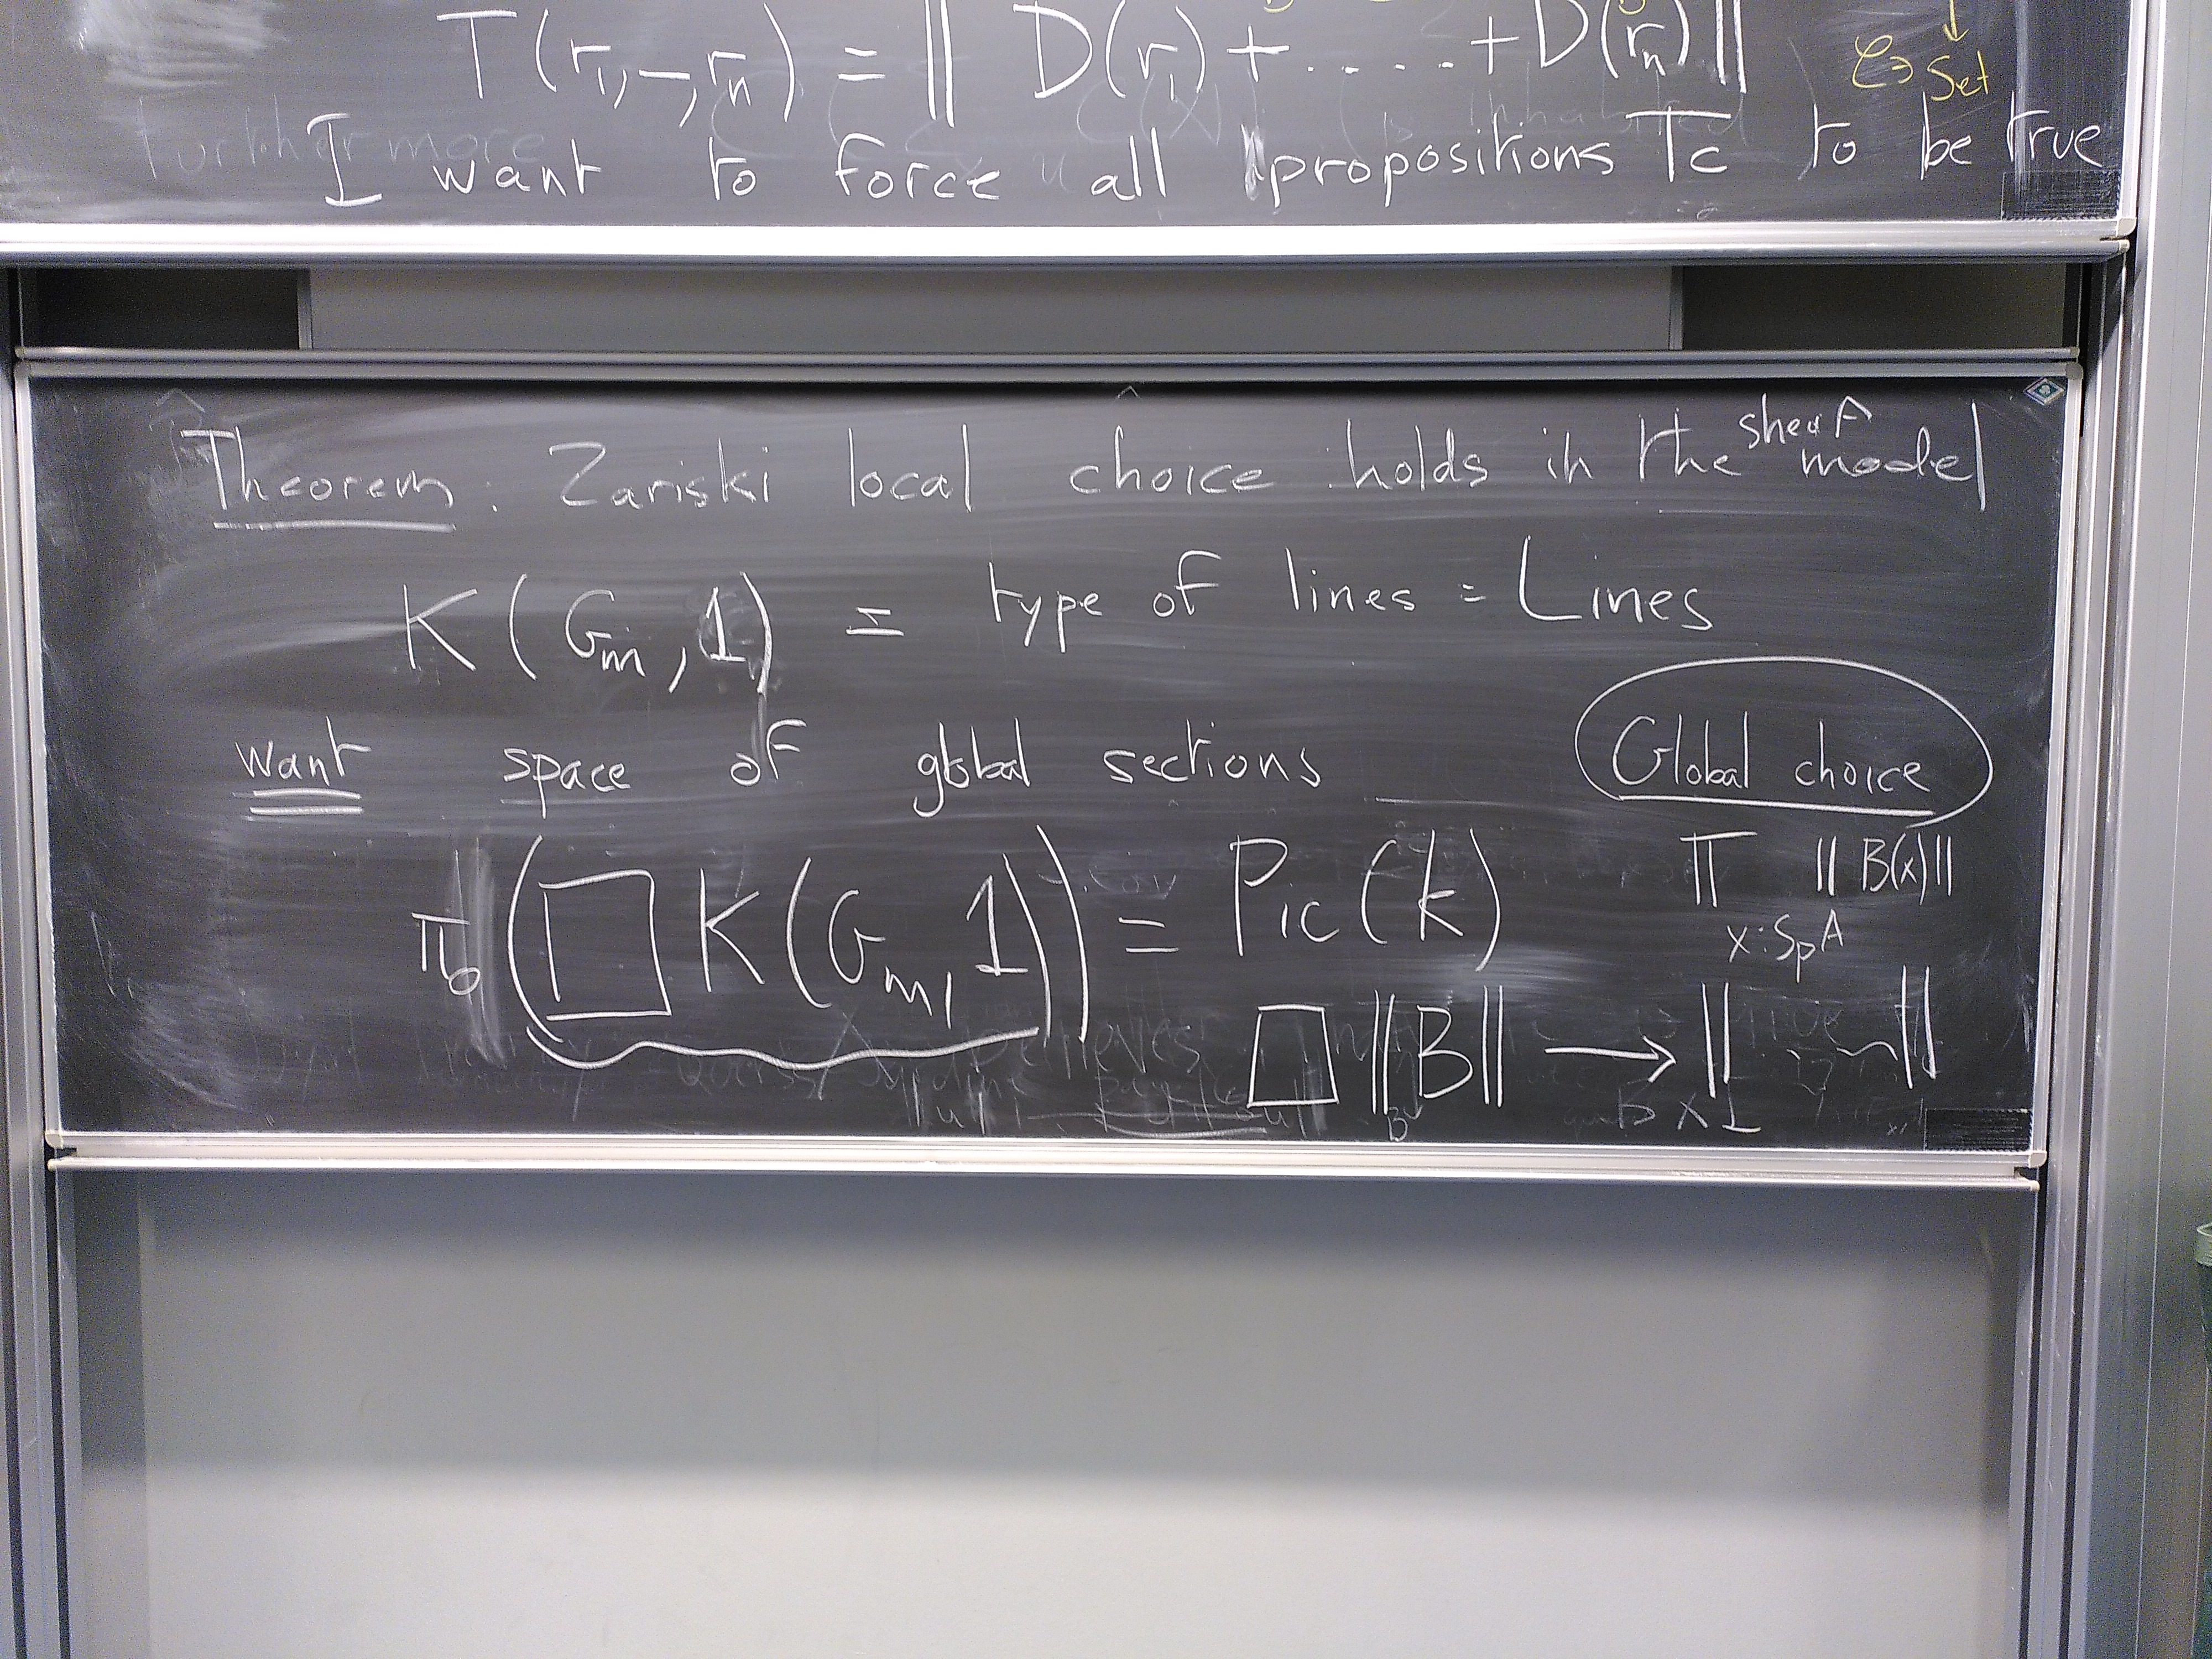 T(r₁,–,rₙ) = ‖ D(r₁) + ..... + D(rₙ) ‖
↓
Set
I want to force all propositions Tc to be true
Theorem : Zariski local choice holds in the sheaf model
K(Gm, 1) = type of lines = Lines
want space of global sections
Global choice
π₀(□ K(Gm, 1)) = Pic(k)
Π ‖B(x)‖
x:SpA
□ ‖B‖ → ‖ ~ ‖